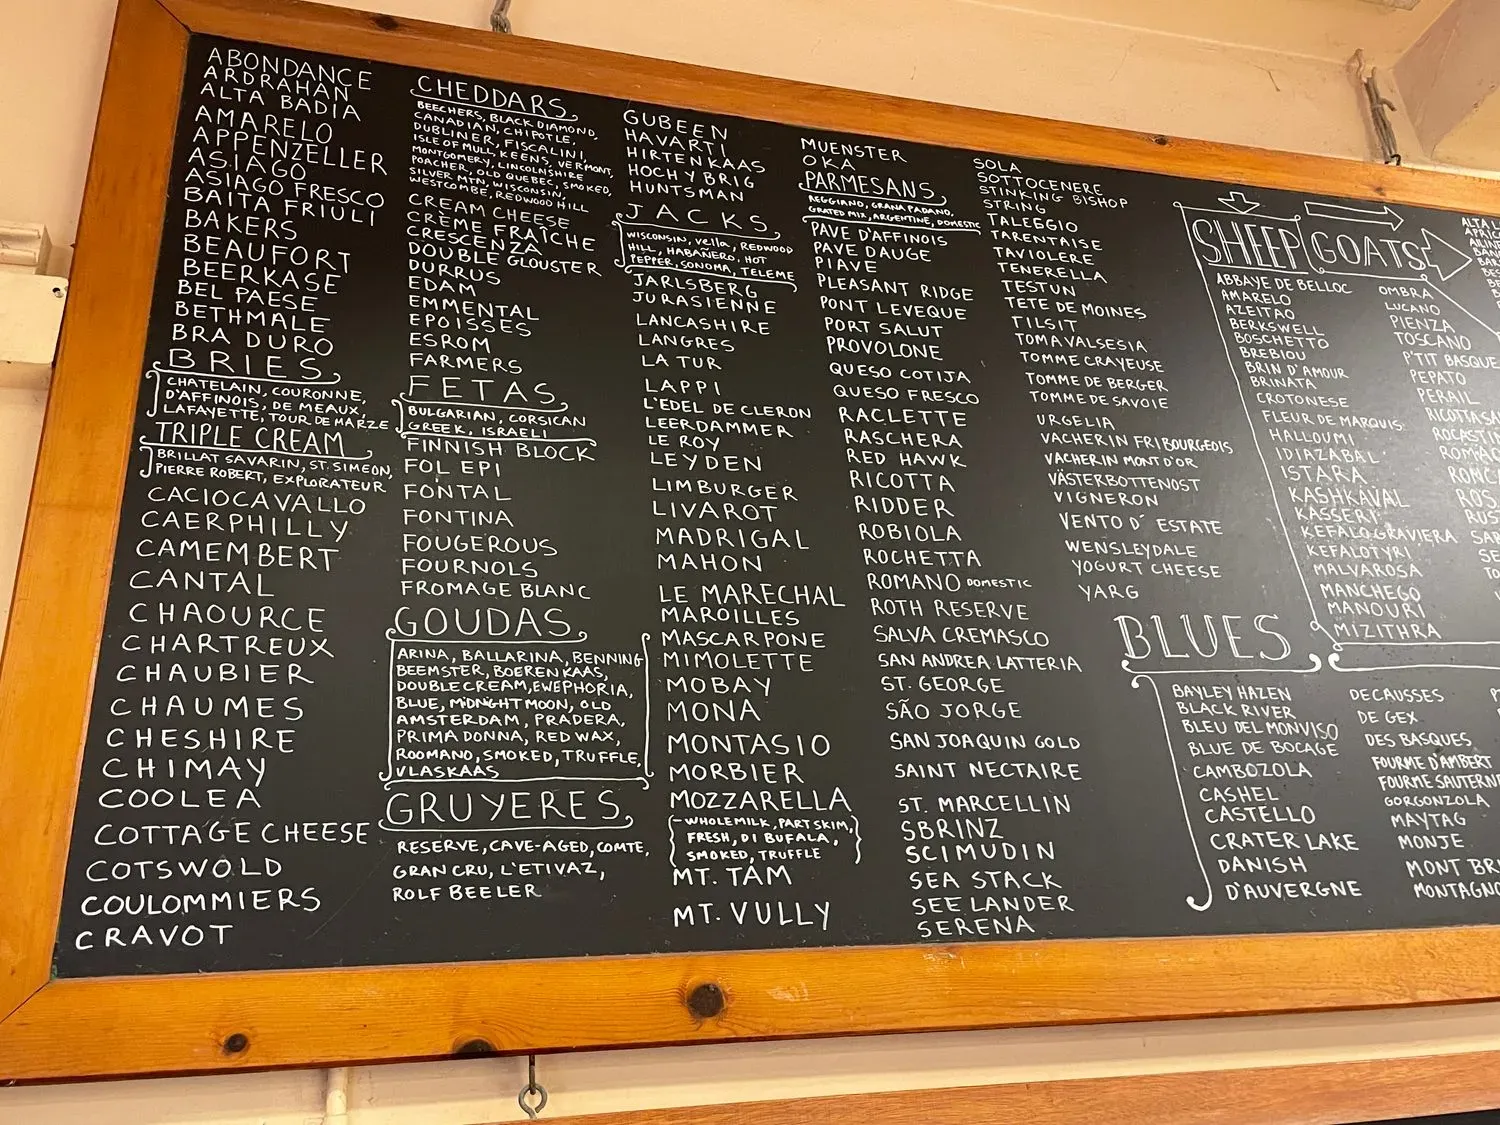 ABONDANCE
ARDRAHAN
ALTA BADIA
AMARELO
APPENZELLER
ASIAGO
ASIAGO FRESCO
BAITA FRIULI
BAKERS
BEAUFORT
BEERKASE
BEL PAESE
BETHMALE
BRA DURO
BRIES
CHATELAIN, COURONNE,
D'AFFINOIS, DE MEAUX,
LAFAYETTE, TOUR DE MARZE
TRIPLE CREAM
BRILLAT SAVARIN, ST. SIMEON,
PIERRE ROBERT, EXPLORATEUR
CACIOCAVALLO
CAERPHILLY
CAMEMBERT
CANTAL
CHAOURCE
CHARTREUX
CHAUBIER
CHAUMES
CHESHIRE
CHIMAY
COOLEA
COTTAGE CHEESE
COTSWOLD
COULOMMIERS
CRAVOT
CHEDDARS
BEECHERS, BLACK DIAMOND,
CANADIAN, CHIPOTLE,
DUBLINER, FISCALINI,
ISLE OF MULL, KEENS, VERMONT,
MONTGOMERY, LINCOLNSHIRE
POACHER, OLD QUEBEC, SMOKED,
SILVER MTN, WISCONSIN,
WESTCOMBE, REDWOOD HILL
CREAM CHEESE
CRÈME FRAÎCHE
CRESCENZA
DOUBLE GLOUSTER
DURRUS
EDAM
EMMENTAL
EPOISSES
ESROM
FARMERS
FETAS
BULGARIAN, CORSICAN
GREEK, ISRAELI
FINNISH BLOCK
FOL EPI
FONTAL
FONTINA
FOUGEROUS
FOURNOLS
FROMAGE BLANC
GOUDAS
ARINA, BALLARINA, BENNING
BEEMSTER, BOERENKAAS,
DOUBLE CREAM, EWEPHORIA,
BLUE, MIDNIGHT MOON, OLD
AMSTERDAM, PRADERA,
PRIMA DONNA, RED WAX,
ROOMANO, SMOKED, TRUFFLE,
VLASKAAS
GRUYERES
RESERVE, CAVE-AGED, COMTE,
GRAN CRU, L'ETIVAZ,
ROLF BEELER
GUBEEN
HAVARTI
HIRTENKAAS
HOCH YBRIG
HUNTSMAN
JACKS
WISCONSIN, Vella, REDWOOD
HILL, HABAÑERO, HOT
PEPPER, SONOMA, TELEME
JARLSBERG
JURASIENNE
LANCASHIRE
LANGRES
LA TUR
LAPPI
L'EDEL DE CLERON
LEERDAMMER
LE ROY
LEYDEN
LIMBURGER
LIVAROT
MADRIGAL
MAHON
LE MARECHAL
MAROILLES
MASCARPONE
MIMOLETTE
MOBAY
MONA
MONTASIO
MORBIER
MOZZARELLA
WHOLE MILK, PART SKIM,
FRESH, DI BUFALA,
SMOKED, TRUFFLE
MT. TAM
MT. VULLY
MUENSTER
OKA
PARMESANS
REGGIANO, GRANA PADANO,
GRATED MIX, ARGENTINE, DOMESTIC
PAVE D'AFFINOIS
PAVE DAUGE
PIAVE
PLEASANT RIDGE
PONT LEVEQUE
PORT SALUT
PROVOLONE
QUESO COTIJA
QUESO FRESCO
RACLETTE
RASCHERA
RED HAWK
RICOTTA
RIDDER
ROBIOLA
ROCHETTA
ROMANO DOMESTIC
ROTH RESERVE
SALVA CREMASCO
SAN ANDREA LATTERIA
ST. GEORGE
SÃO JORGE
SAN JOAQUIN GOLD
SAINT NECTAIRE
ST. MARCELLIN
SBRINZ
SCIMUDIN
SEA STACK
SEELANDER
SERENA
SOLA
SOTTOCENERE
STINKING BISHOP
STRING
TALEGGIO
TARENTAISE
TAVIOLERE
TENERELLA
TESTUN
TETE DE MOINES
TILSIT
TOMA VALSESIA
TOMME CRAYEUSE
TOMME DE BERGER
TOMME DE SAVOIE
URGELIA
VACHERIN FRIBOURGEOIS
VACHERIN MONT D'OR
VÄSTERBOTTENOST
VIGNERON
VENTO D'ESTATE
WENSLEYDALE
YOGURT CHEESE
YARG
SHEEP
ABBAYE DE BELLOC
AMARELO
AZEITAO
BERKSWELL
BOSCHETTO
BREBIOU
BRIN D'AMOUR
BRINATA
CROTONESE
FLEUR DE MARQUIS
HALLOUMI
IDIAZABAL
ISTARA
KASHKAVAL
KASSERY
KEFALOGRAVIERA
KEFALOTYRI
MALVAROSA
MANCHEGO
MANOURI
MIZITHRA
OMBRA
LUCANO
PIENZA
TOSCANO
P'TIT BASQUE
PEPATO
PERAIL
GOATS
BLUES
BAYLEY HAZEN
BLACK RIVER
BLEU DEL MONVISO
BLUE DE BOCAGE
CAMBOZOLA
CASHEL
CASTELLO
CRATER LAKE
DANISH
D'AUVERGNE
DECAUSSES
DE GEX
DES BASQUES
FOURME D'AMBERT
FOURME SAUTERNE
GORGONZOLA
MAYTAG
MONJE
MONT BRI
MONTAGNO